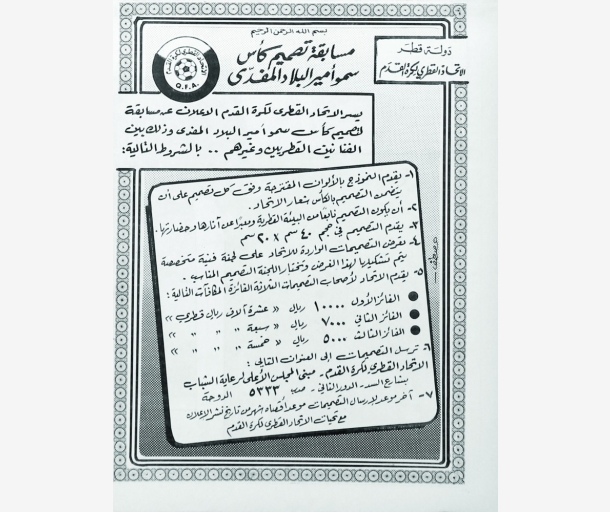 بسم الله الرحمن الرحيم
دولة قطر
الاتحاد القطري لكرة القدم
مسابقة تصميم كأس
سمو أمير البلاد المفدى
Q.F.A.
يسر الاتحاد القطرى لكرة القدم الاعلان عن مسابقة
لتصميم كأس سمو أمير البلاد المفدى وذلك بين
الفنانين القطريين وغيرهم .. بالشروط التالية:
١- يقدم النموذج بالألوان المقترحة وفق كل تصميم على أن
يتضمن التصميم بالكأس شعار الاتحاد.
٢- أن يكون التصميم نابعا من البيئة القطرية ومعبرا عن آثارها وحضارتها.
٣- يقدم التصميم في حجم ٤٠ سم × ٢٠ سم
٤- تعرض التصميمات الواردة للاتحاد على لجنة فنية متخصصة
يتم تشكيلها لهذا الغرض وتختار اللجنة التصميم المناسب.
٥- يقدم الاتحاد لأصحاب التصميمات الثلاثة الفائزة المكافآت التالية:
الفائز الأول ١٠٠٠٠ ريال « عشرة آلاف ريال قطري »
الفائز الثاني ٧٠٠٠ ريال « سبعة " " " »
الفائز الثالث ٥٠٠٠ ريال « خمسة " " " »
٦- ترسل التصميمات إلى العنوان التالي:
الاتحاد القطري لكرة القدم - مبنى المجلس الأعلى لرعاية الشباب
بشارع السد - الدور الثاني - ص.ب ٥٣٣٣ الدوحة
٧- آخر موعد لإرسال التصميمات موعد أقصاه شهر من تاريخ نشر الإعلان
مع تحيات الاتحاد القطري لكرة القدم